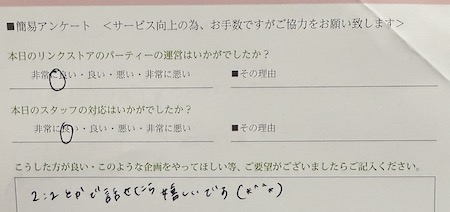 ■簡易アンケート <サービス向上の為、お手数ですがご協力をお願い致します>
本日のリンクストアのパーティーの運営はいかがでしたか？
非常に良い・良い・悪い・非常に悪い ■その理由
本日のスタッフの対応はいかがでしたか？
非常に良い・良い・悪い・非常に悪い ■その理由
こうした方が良い・このような企画をやってほしい等、ご要望がございましたらご記入ください。
2:2とかで話せたら嬉しいです(*^^*)